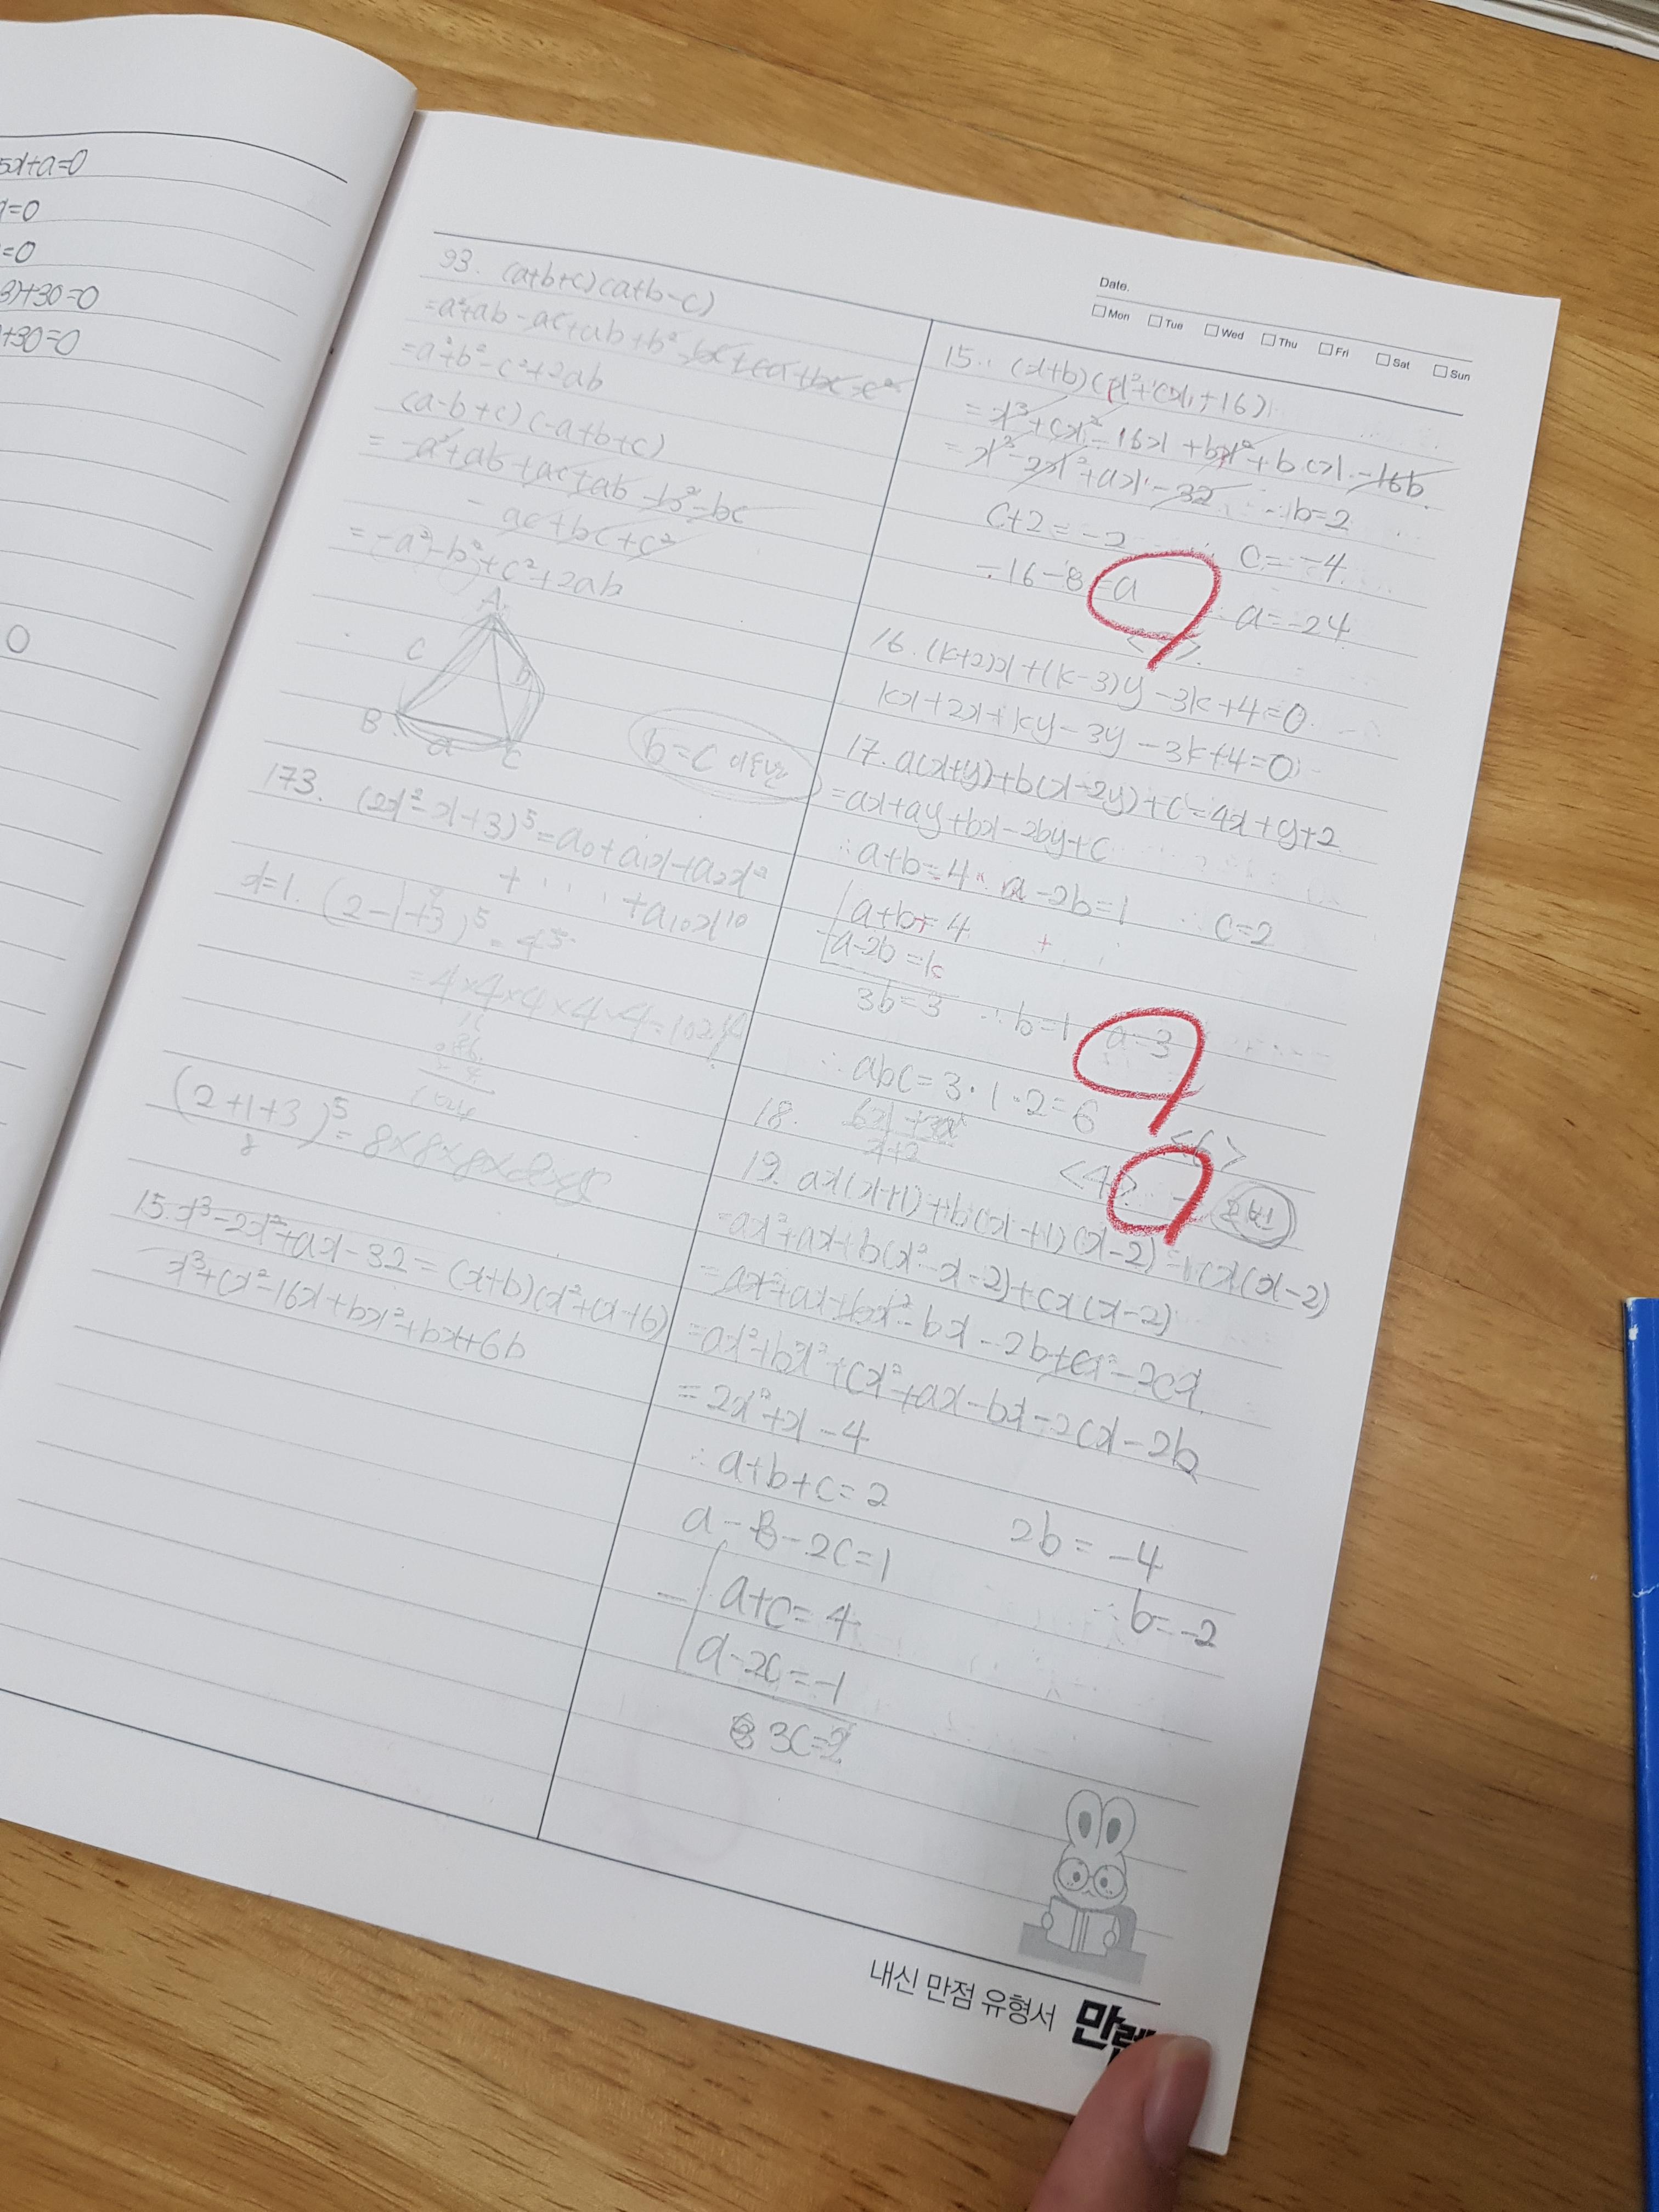 5x+a=0
=0
=0
3)+30=0
+30=0
0
Date.
Mon Tue Wed Thu Fri Sat Sun
93. (a+b+c)(a+b-c)
=a²+ab-ac+ab+b²-bc+ca+bc-c²
=a²+b²-c²+2ab
(a-b+c)(-a+b+c)
= -a²+ab+ac+ab-b²-bc
-ac+bc+c²
=-a²-b²+c²+2ab
A
C
b
B
a
C
b=c
173. (2x²-x+3)⁵=a₀+a₁x+a₂x²
+ ···· +a₁₀x¹⁰
x=1. (2-1+3)⁵=4⁵
=4×4×4×4×4=1024
1024
(2+1+3)⁵=8×8×8×8×8
8
15. x³-2x²+ax-32=(x+b)(x²+cx+16)
x³+cx²-16x+bx²+bx+6b
15. (x+b)(x²+cx+16)
=x³+cx²-16x+bx²+bcx-16b
=x³-2x²+ax-32 ∴b=2
c+2=-2 ∴ c=-4
-16-8=a ∴ a=-24
16. (k+2)x+(k-3)y-3k+4=0
kx+2x+ky-3y-3k+4=0
17. a(x+y)+b(x-2y)+c=4x+y+2
=ax+ay+bx-2by+c
∴a+b=4 a-2b=1 ∴ c=2
a+b=4
-a-2b=1
3b=3 ∴b=1 a=3
∴ abc=3·1·2=6
<6>
18.
x+2
<4>
19. ax(x+1)+b(x+1)(x-2)+cx(x-2)
=ax²+ax+b(x²-x-2)+cx(x-2)
=ax²+ax+bx²-bx-2b+cx²-2cx
=ax²+bx²+cx²+ax-bx-2cx-2b
=2x²+x-4
∴a+b+c=2 2b=-4
a-b-2c=1 ∴b=-2
-a+c=4
a-2c=-1
3c=2
내신 만점 유형서 만렙